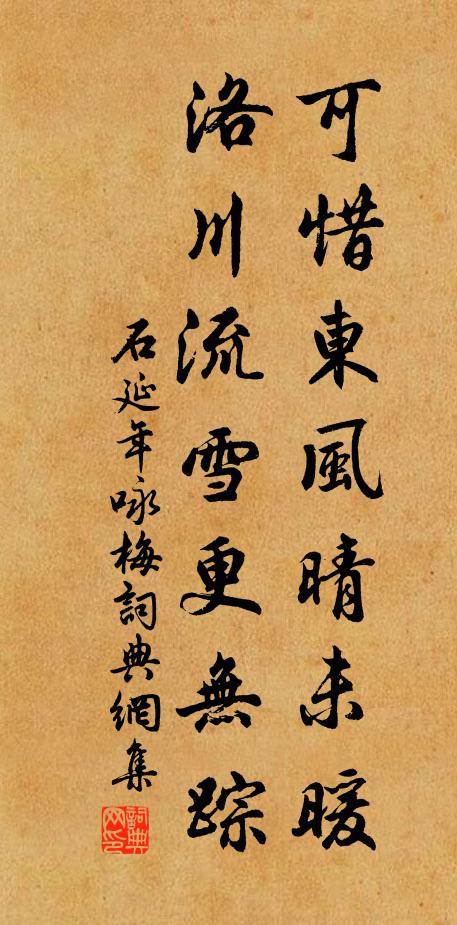 可惜東風晴未暖
洛川流雪更無踪
石延年咏梅詞典網集
詞典網印